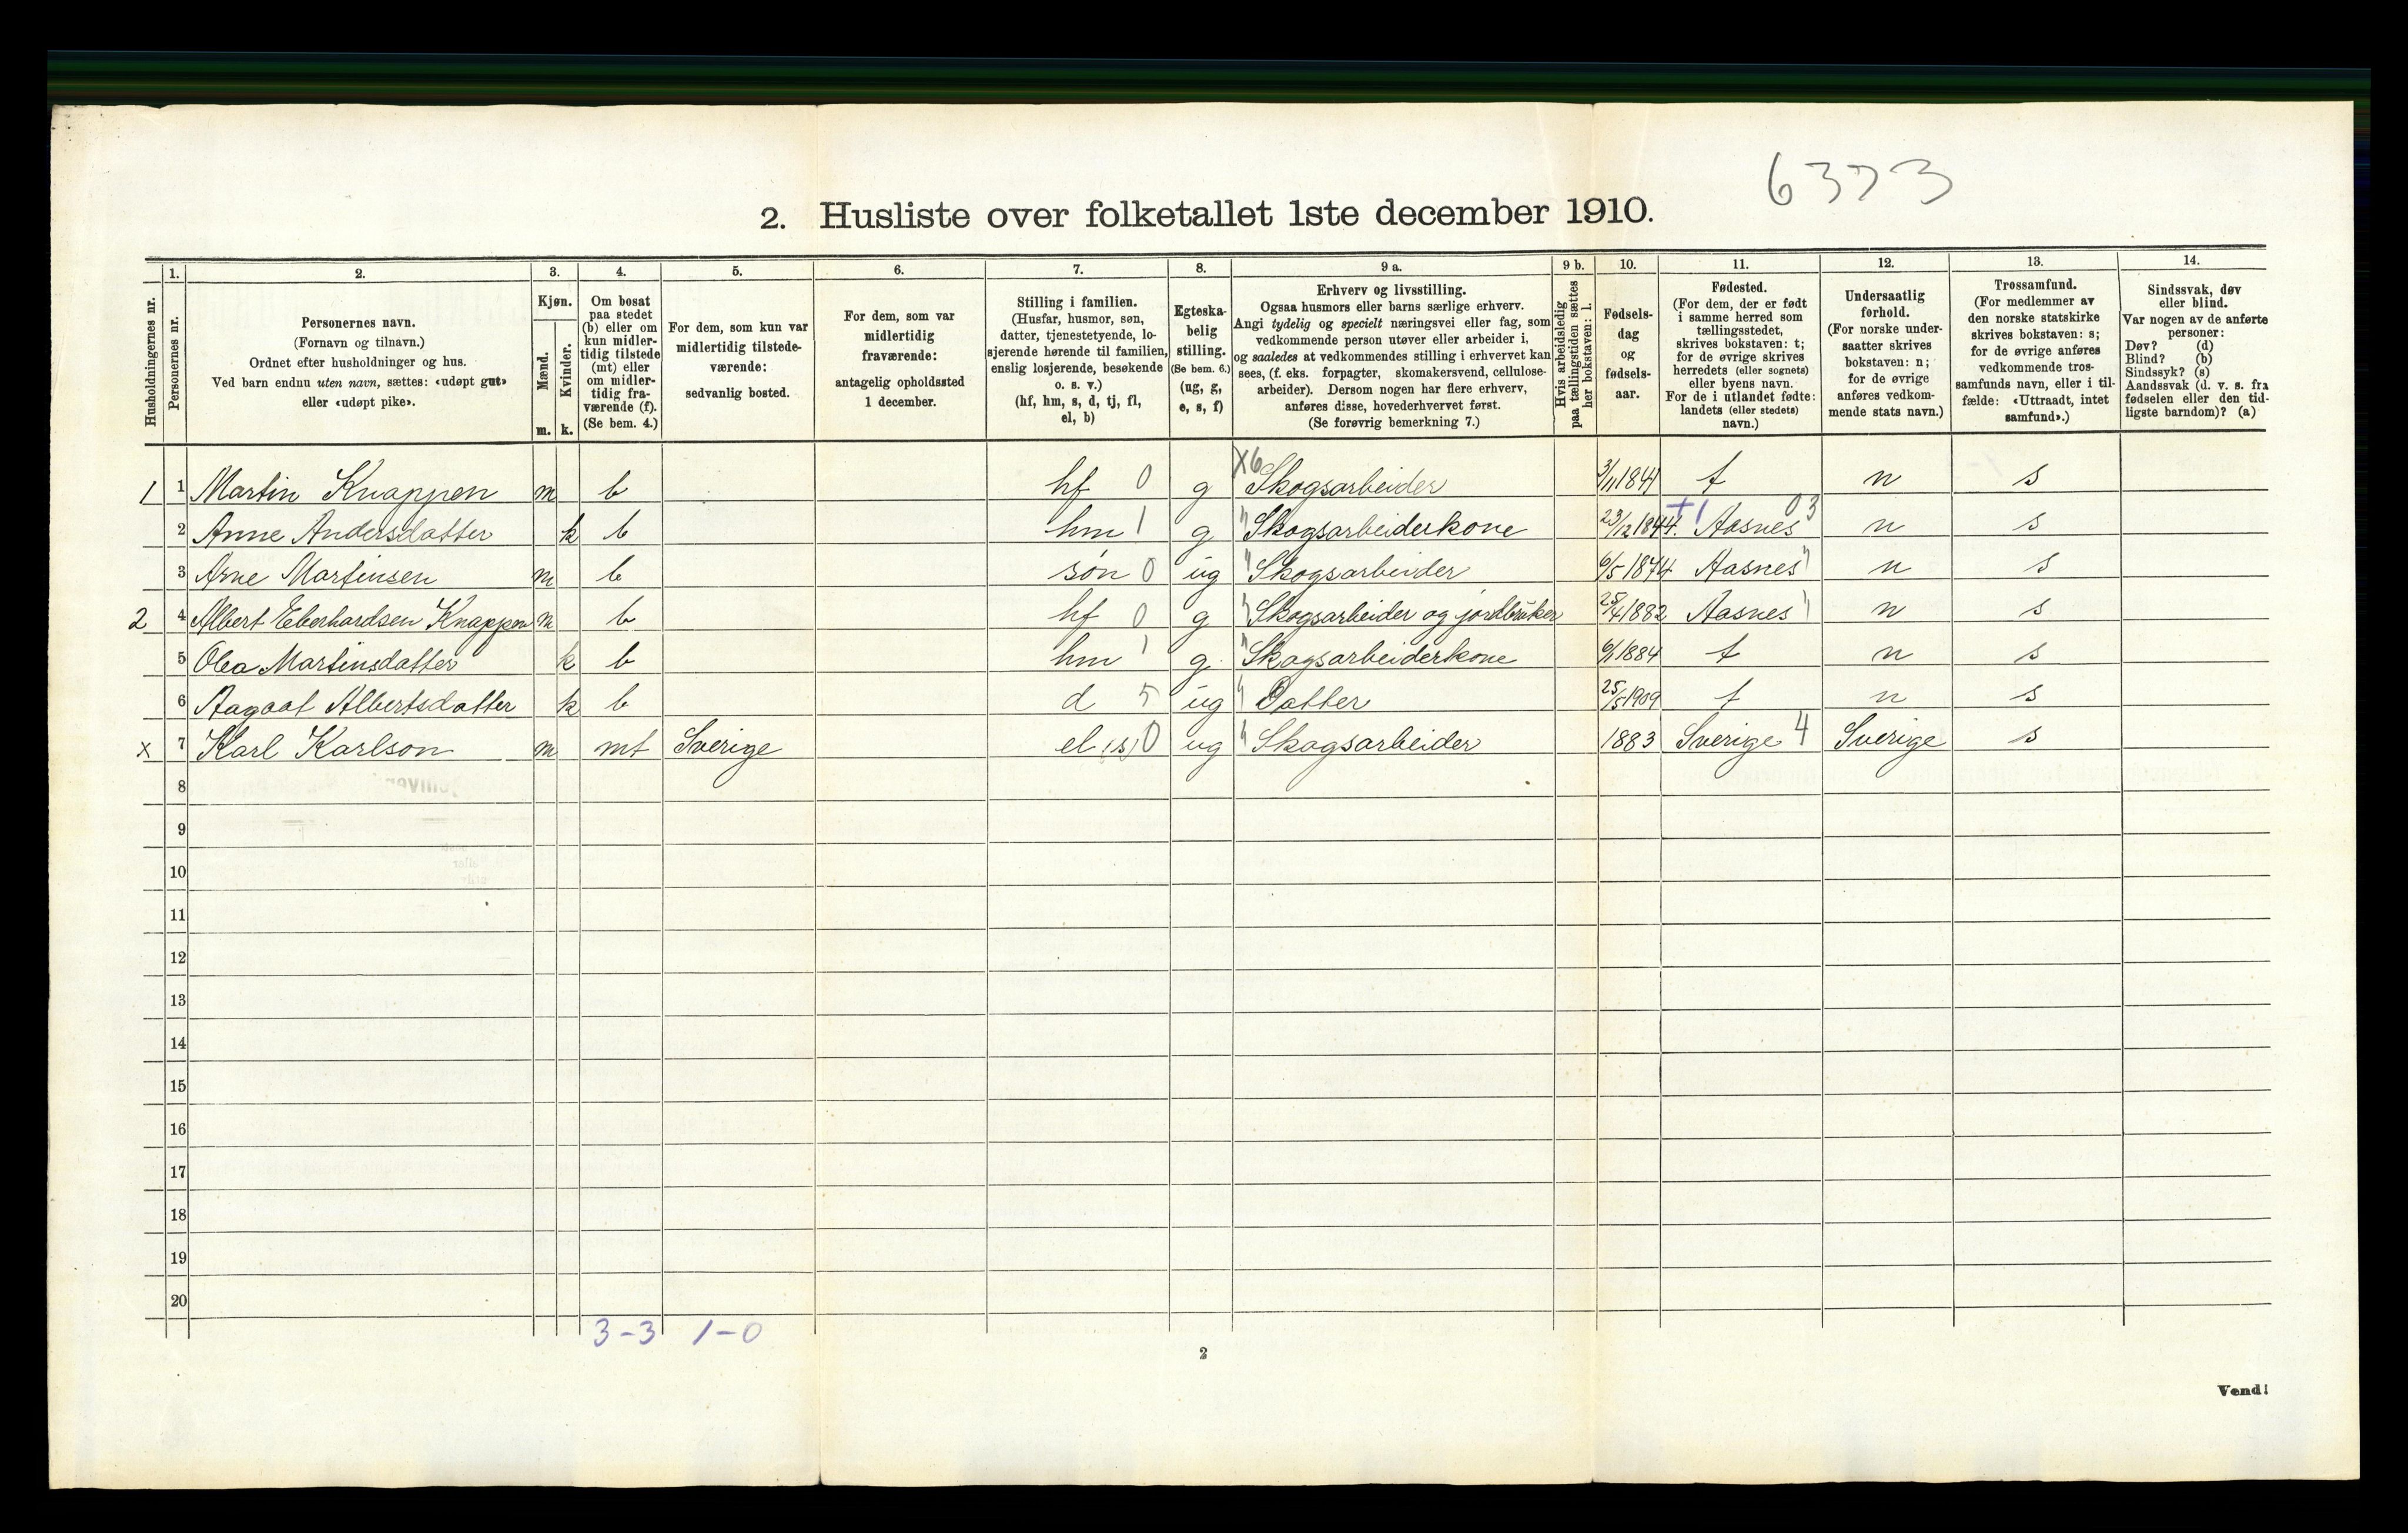 6373
2. Husliste over folketallet 1ste december 1910.
Husholdningernes nr.
1. Personernes nr.
2. Personernes navn.
(Fornavn og tilnavn.)
Ordnet efter husholdninger og hus.
Ved barn endnu uten navn, sættes: «udøpt gut»
eller «udøpt pike».
3. Kjøn.
Mænd. m.
Kvinder. k.
4. Om bosat
paa stedet
(b) eller om
kun midler-
tidig tilstede
(mt) eller
om midler-
tidig fra-
værende (f).
(Se bem. 4.)
5. For dem, som kun var
midlertidig tilstede-
værende:
sedvanlig bosted.
6. For dem, som var
midlertidig
fraværende:
antagelig opholdssted
1 december.
7. Stilling i familien.
(Husfar, husmor, søn,
datter, tjenestetyende, lo-
sjerende hørende til familien,
enslig losjerende, besøkende
o. s. v.)
(hf, hm, s, d, tj, fl,
el, b)
8. Egteska-
belig
stilling.
(Se bem. 6.)
(ug, g,
e, s, f)
9 a. Erhverv og livsstilling.
Ogsaa husmors eller barns særlige erhverv.
Angi tydelig og specielt næringsvei eller fag, som
vedkommende person utøver eller arbeider i,
og saaledes at vedkommendes stilling i erhvervet kan
sees, (f. eks. forpagter, skomakersvend, cellulose-
arbeider). Dersom nogen har flere erhverv,
anføres disse, hovederhvervet først.
(Se forøvrig bemerkning 7.)
9 b. Hvis arbeidsledig
paa tællingstiden sættes
her bokstaven: l.
10. Fødsels-
dag
og
fødsels-
aar.
11. Fødested.
(For dem, der er født
i samme herred som
tællingsstedet,
skrives bokstaven: t;
for de øvrige skrives
herredets (eller sognets)
eller byens navn.
For de i utlandet fødte:
landets (eller stedets)
navn.)
12. Undersaatlig
forhold.
(For norske under-
saatter skrives
bokstaven: n;
for de øvrige
anføres vedkom-
mende stats navn.)
13. Trossamfund.
(For medlemmer av
den norske statskirke
skrives bokstaven: s;
for de øvrige anføres
vedkommende tros-
samfunds navn, eller i til-
fælde: «Uttraadt, intet
samfund».)
14. Sindssvak, døv
eller blind.
Var nogen av de anførte
personer:
Døv? (d)
Blind? (b)
Sindssyk? (s)
Aandssvak (d. v. s. fra
fødselen eller den tid-
ligste barndom)? (a)
X6
1 1 Martin Knappen m b hf 0 g Skogsarbeider 3/11 1841 t n s
2 Anne Andersdatter k b hm 1 g " Skogsarbeiderkone 23/12 1844. +1 Aasnes 03 n s
3 Arne Martinsen m b søn 0 ug " Skogsarbeider 6/5 1874 Aasnes " n s
2 4 Albert Eberhardsen Knappen m b hf 0 g " Skogsarbeider og jordbruker 25/4 1882 Aasnes " n s
5 Olea Martinsdatter k b hm 1 g " Skogsarbeiderkone 6/1 1884 t n s
6 Aagoat Albertsdatter k b d 5 ug " Datter 25/5 1909 t n s
x 7 Karl Karlson m mt Sverige el (s) 0 ug " Skogsarbeider 1883 Sverige 4 Sverige s
8
9
10
11
12
13
14
15
16
17
18
19
20
3-3 1-0
2
Vend!